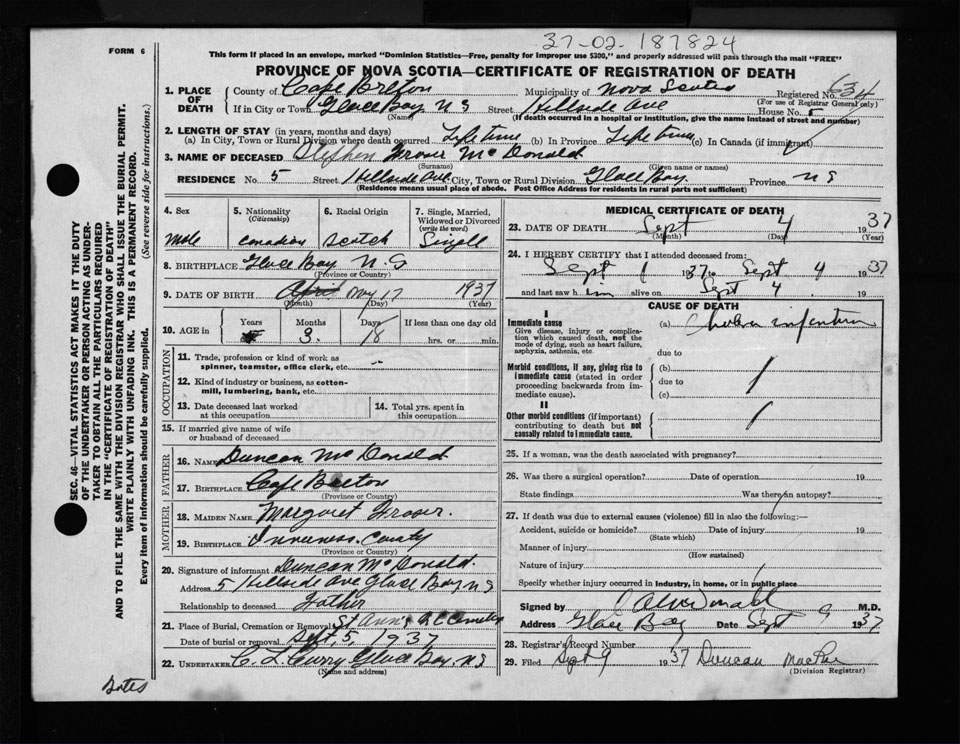 37-02-187824
FORM 6
This form if placed in an envelope, marked "Dominion Statistics—Free, penalty for improper use $300," and properly addressed will pass through the mail "FREE"
PROVINCE OF NOVA SCOTIA—CERTIFICATE OF REGISTRATION OF DEATH
1. PLACE OF DEATH
County of Cape Breton Municipality of Nova Scotia Registered No. 634
(For use of Registrar General only)
If in City or Town Glace Bay, N S Street Hillside Ave House No. 5
(Name) (If death occurred in a hospital or institution, give the name instead of street and number)
2. LENGTH OF STAY (in years, months and days)
(a) In City, Town or Rural Division where death occurred Life time (b) In Province Life time (c) In Canada (if immigrant)
3. NAME OF DECEASED Stephen Grover McDonald
(Surname) (Given name or names)
RESIDENCE No. 5 Street Hillside Ave City, Town or Rural Division Glace Bay Province N S
(Residence means usual place of abode. Post Office Address for residents in rural parts not sufficient)
4. Sex
Male
5. Nationality (Citizenship)
Canadian
6. Racial Origin
Scotch
7. Single, Married, Widowed or Divorced (write the word)
Single
8. BIRTHPLACE Glace Bay N. S
(Province or Country)
9. DATE OF BIRTH May 17 1937
(Month) (Day) (Year)
10. AGE in Years Months Days If less than one day old
3. 18 hrs. or min.
OCCUPATION
11. Trade, profession or kind of work as spinner, teamster, office clerk, etc.
12. Kind of industry or business, as cotton-mill, lumbering, bank, etc.
13. Date deceased last worked at this occupation
14. Total yrs. spent in this occupation
15. If married give name of wife or husband of deceased
FATHER
16. NAME Duncan McDonald
17. BIRTHPLACE Cape Breton
(Province or Country)
MOTHER
18. MAIDEN NAME Margaret Grover.
19. BIRTHPLACE Inverness County
(Province or Country)
20. Signature of informant Duncan McDonald.
Address 5 Hillside Ave Glace Bay, N S
Relationship to deceased Father
21. Place of Burial, Cremation or Removal St Ann's R C Cemetery
Date of burial or removal Sept. 5, 1937
22. UNDERTAKER C. L. Curry Glace Bay, N S
(Name and address)
MEDICAL CERTIFICATE OF DEATH
23. DATE OF DEATH Sept 4 1937
(Month) (Day) (Year)
24. I HEREBY CERTIFY that I attended deceased from:
Sept 1 1937 to Sept 4 1937
and last saw him alive on Sept 4 19
CAUSE OF DEATH
I
Immediate cause
Give disease, injury or complication which caused death, not the mode of dying, such as heart failure, asphyxia, asthenia, etc.
(a) Cholera infantum
due to
Morbid conditions, if any, giving rise to immediate cause (stated in order proceeding backwards from immediate cause).
(b)
due to
(c)
II
Other morbid conditions (if important) contributing to death but not causally related to immediate cause.
25. If a woman, was the death associated with pregnancy?
26. Was there a surgical operation? Date of operation 19
State findings Was there an autopsy?
27. If death was due to external causes (violence) fill in also the following:—
Accident, suicide or homicide? Date of injury 19
(State which)
Manner of injury
(How sustained)
Nature of injury
Specify whether injury occurred in industry, in home, or in public place
Signed by McDonald M.D.
Address Glace Bay Date Sept 9 1937
28. Registrar's Record Number
29. Filed Sept 9 1937 Duncan MacRae
(Division Registrar)
SEC. 46—VITAL STATISTICS ACT MAKES IT THE DUTY OF THE UNDERTAKER OR PERSON ACTING AS UNDERTAKER TO OBTAIN ALL THE PARTICULARS REQUIRED IN THE "CERTIFICATE OF REGISTRATION OF DEATH"
AND TO FILE THE SAME WITH THE DIVISION REGISTRAR WHO SHALL ISSUE THE BURIAL PERMIT.
WRITE PLAINLY WITH UNFADING INK. THIS IS A PERMANENT RECORD.
Every item of information should be carefully supplied. (See reverse side for instructions.)
Dates